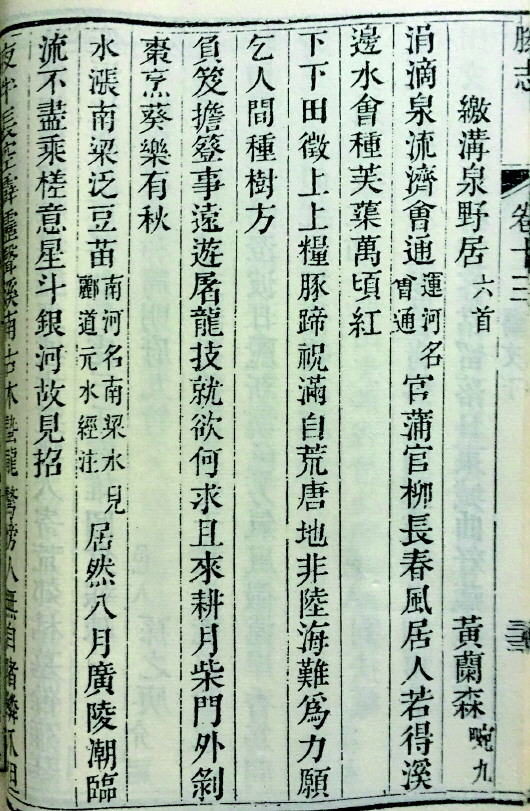 滕志 卷十三
繳溝泉野居 六首 黃蘭森 畹九
涓滴泉流濟會通 運河名會通 官蒲官柳長春風居人若得溪
邊水會種芙蕖萬頃紅
下下田徵上上糧豚蹄祝滿自荒唐地非陸海難為力願
乞人間種樹方
負笈擔簦事遠遊屠龍技就欲何求且來耕月柴門外剝
棗烹葵樂有秋
水漲南梁泛豆苗 南河名南梁水見酈道元水經注 居然八月廣陵潮臨
流不盡乘槎意星斗銀河故見招